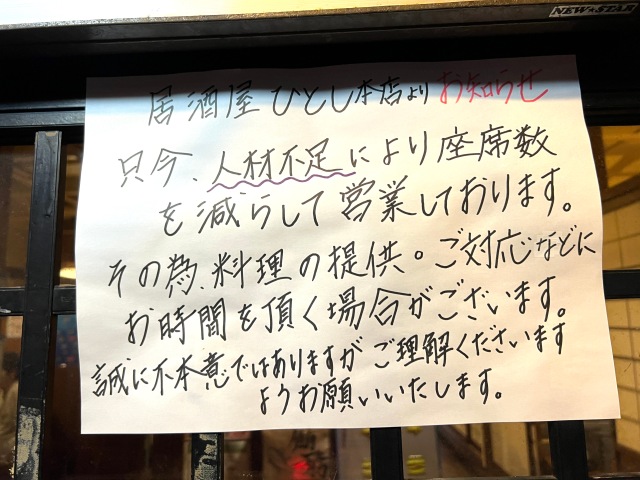 NEW★STAR
居酒屋ひとし本店よりお知らせ
只今、人材不足により座席数
を減らして営業しております。
その為、料理の提供。ご対応などに
お時間を頂く場合がございます。
誠に不本意ではありますがご理解くださいます
ようお願いいたします。